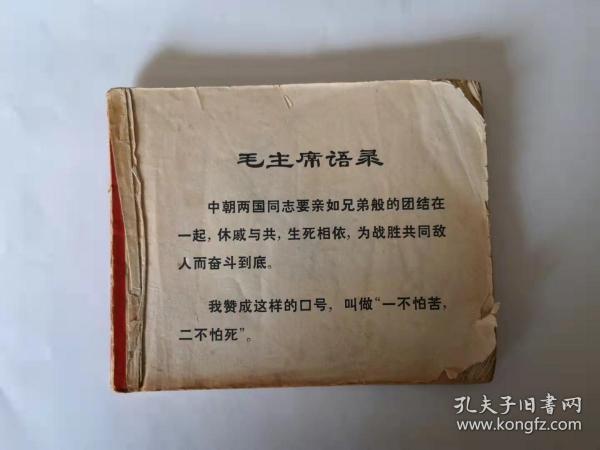 毛主席语录
中朝两国同志要亲如兄弟般的团结在
一起，休戚与共，生死相依，为战胜共同敌
人而奋斗到底。
我赞成这样的口号，叫做“一不怕苦，
二不怕死”。
孔夫子旧书网
www.kongfz.com